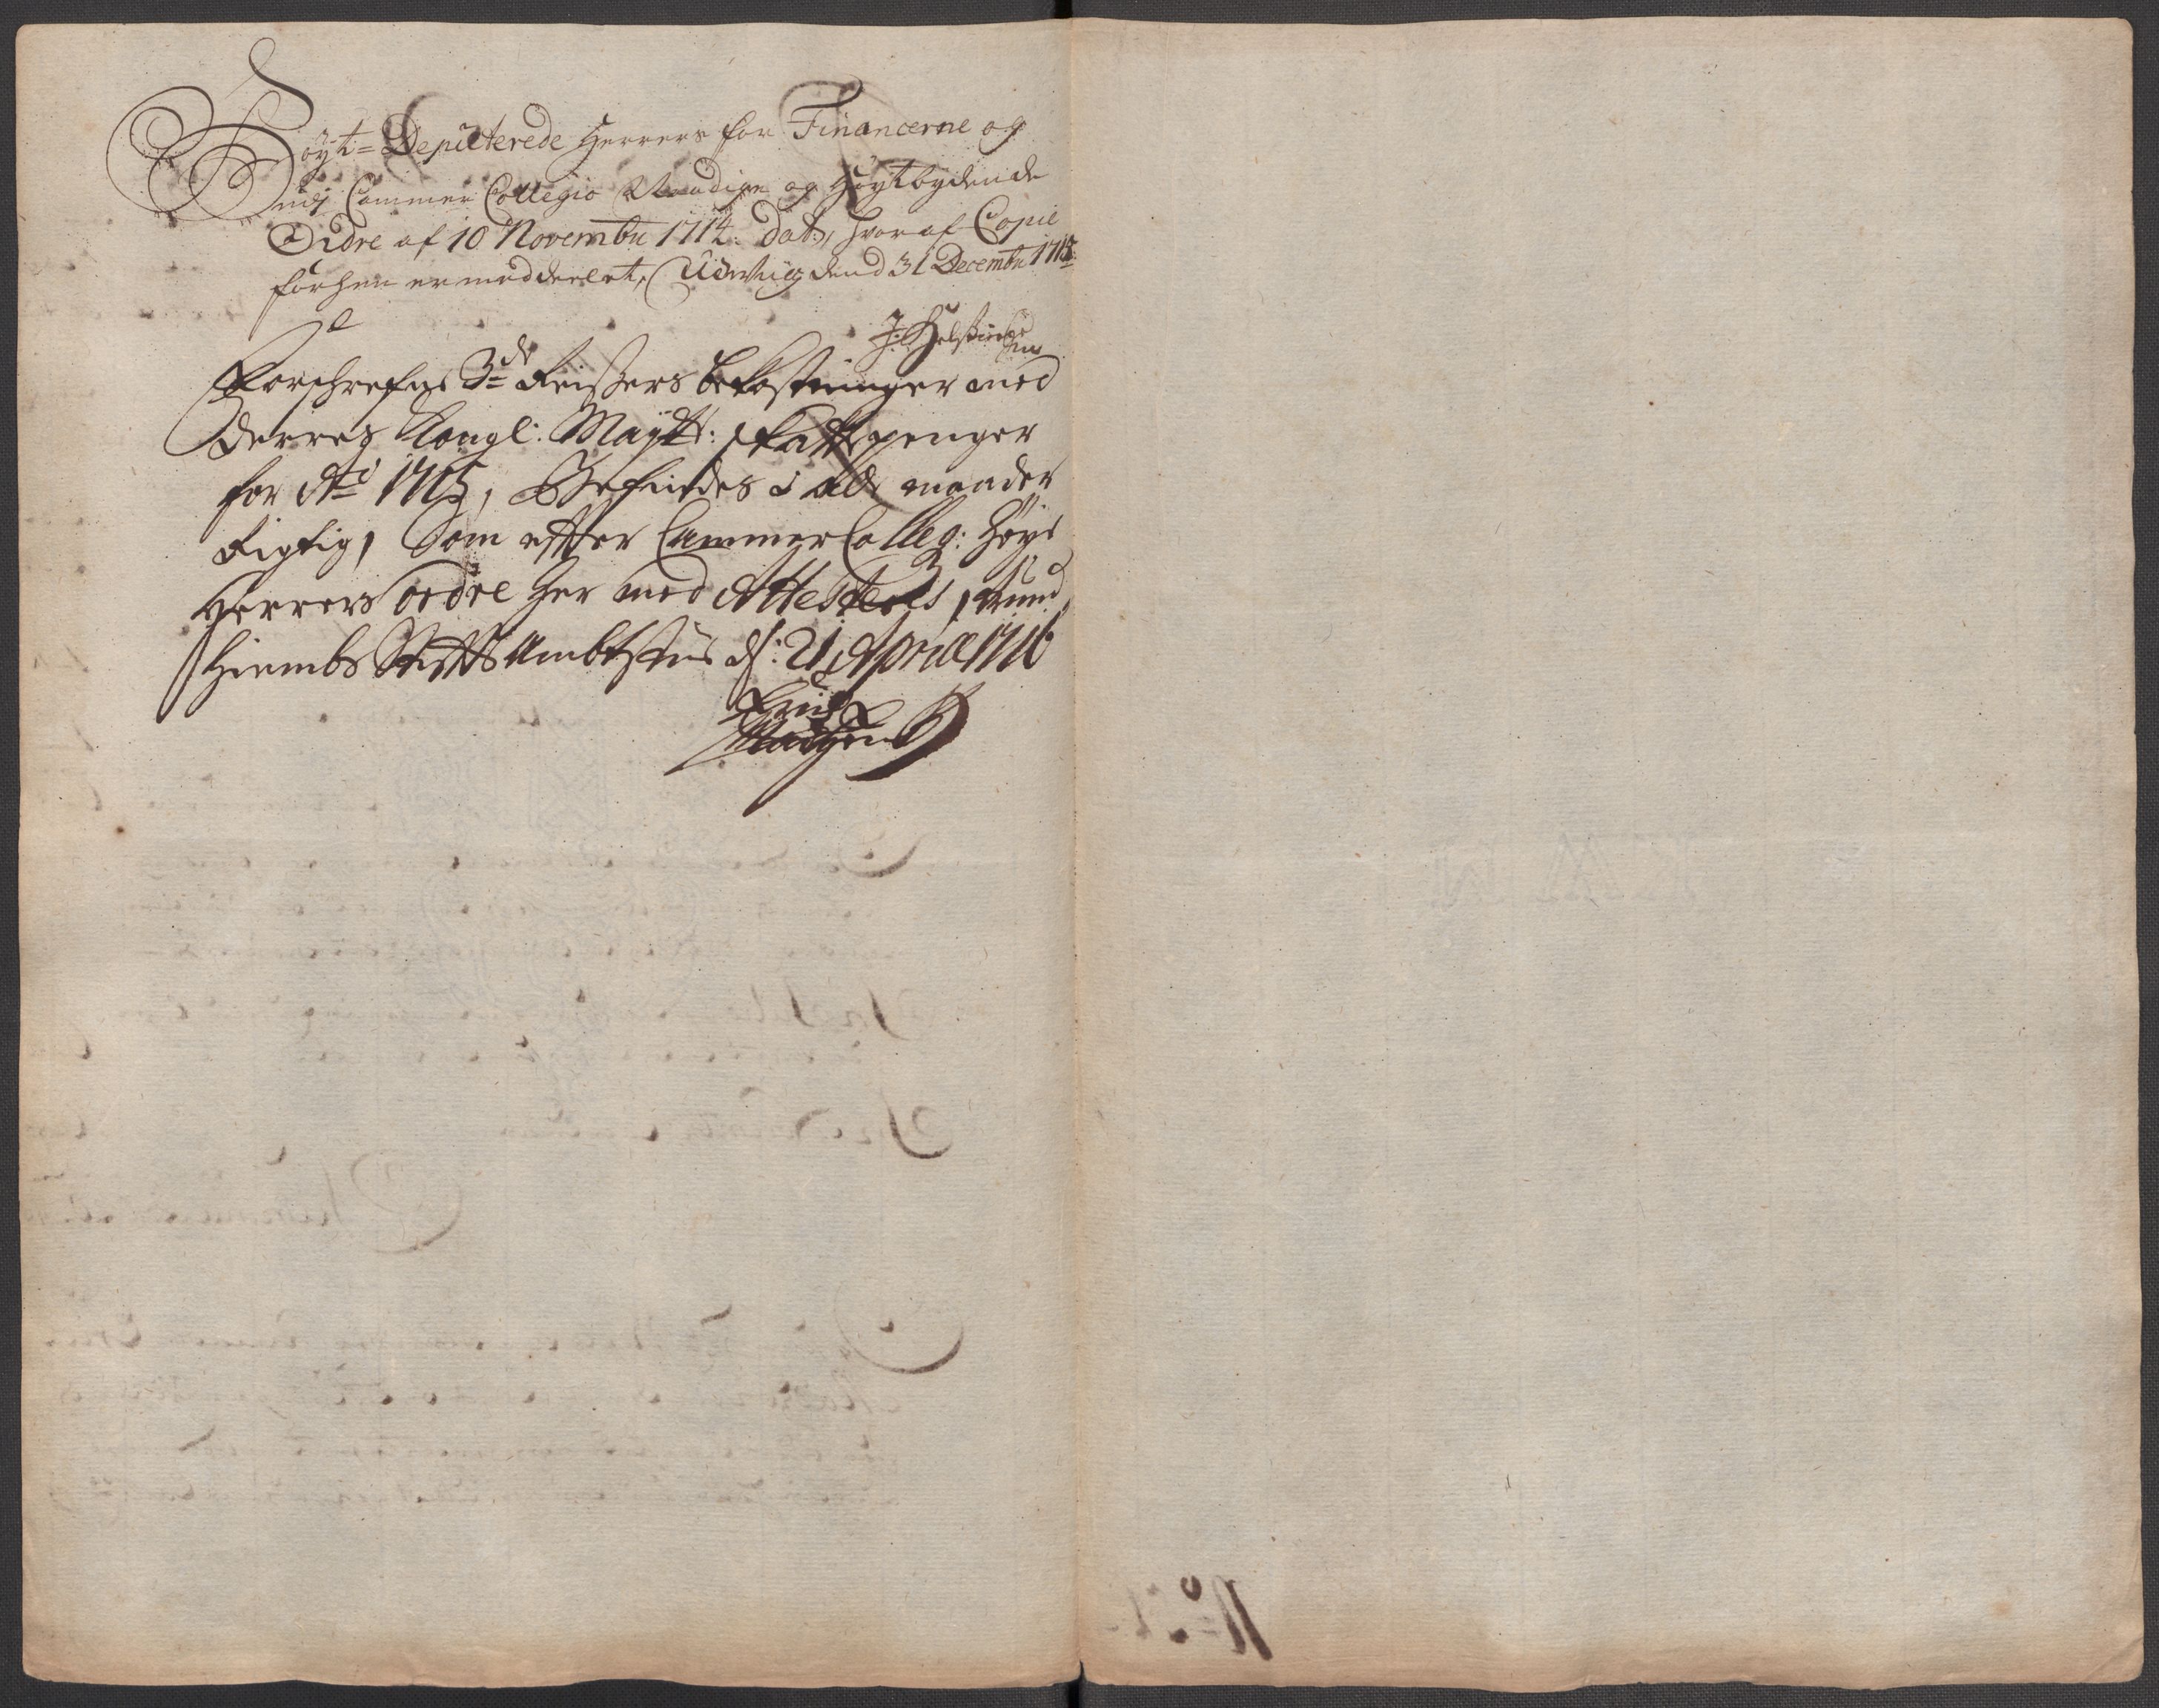 Høyt-Deputerede Herrers for Financerne og
udj Cammer Collegio Naadige og Høytbydende
Ordre af 10 Novembr 1714. Dat:, hvoraf Copie
forhen er meddeelet, Udvig dend 31 Decembr 1715
J: Helsing
Forschrefne 3de Reisers bekostninger med
Derres Kongl: Maytt: skatte penger
for Ao 1715, Befindes i alle maader
Rigtig, Som efter Cammer Colleg: høye
Herrers ordre her med Attesteres, Trund,,
hiembs Stifts Ambtstue d: 21 April 1716
Madsen
No